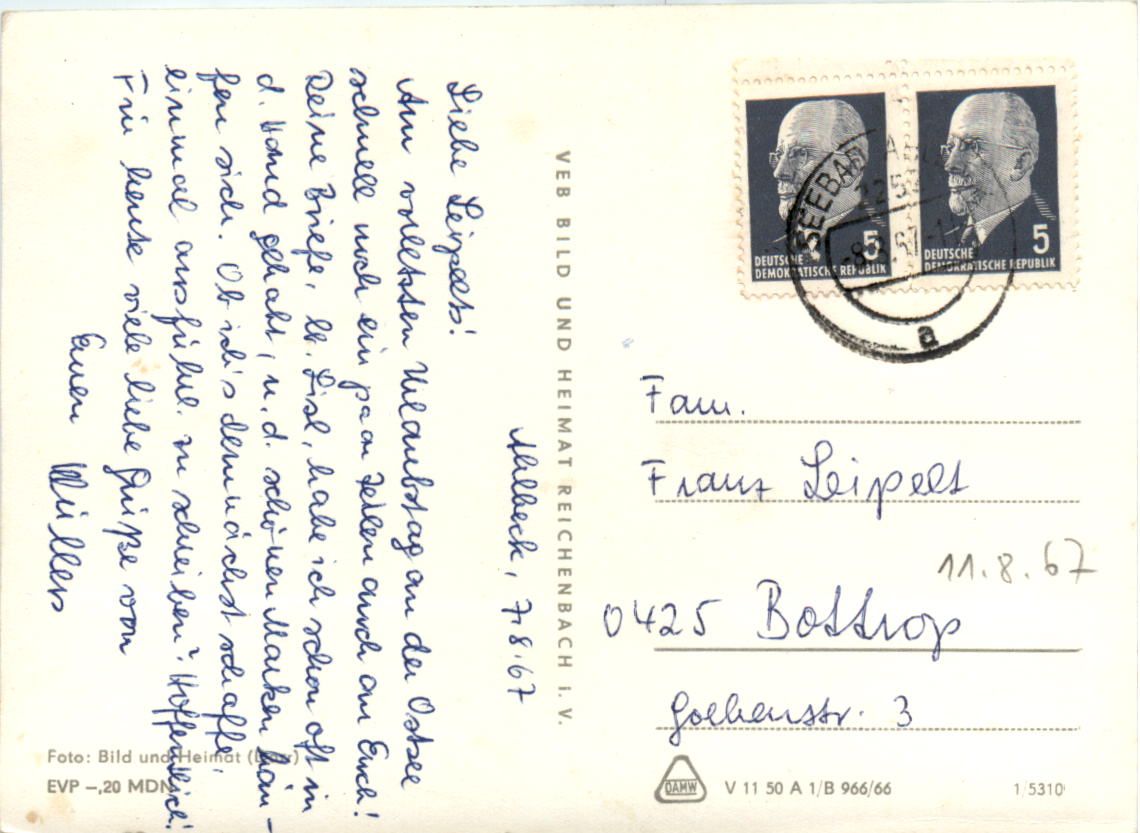 Ahlbeck, 7.8.67
Liebe Leipelts!
Am vorletzten Urlaubstag an der Ostsee
schnell noch ein paar Zeilen auch an Euch!
Deine Briefe, lb. Lisl, habe ich schon oft in
d. Hand gehabt, u. d. schönen Marken häu-
fen sich. Ob ich's demnächst schaffe,
einmal ausführl. zu schreiben? Hoffentlich!
Für heute viele liebe Grüße von
Euren Müllers
VEB BILD UND HEIMAT REICHENBACH i. V.
Foto: Bild und Heimat
EVP –,20 MDN
5
DEUTSCHE
DEMOKRATISCHE REPUBLIK
5
DEUTSCHE
DEMOKRATISCHE REPUBLIK
SEEBAD
-8.8.67-
a
Fam.
Franz Leipelt
11.8.67
0425 Bottrop
Goebenstr. 3
DAMW
V 11 50 A 1/B 966/66
1/5310